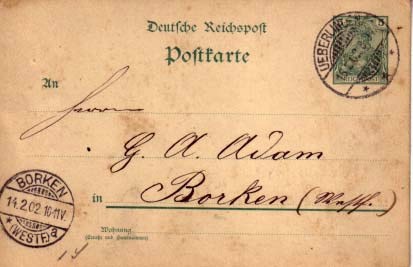 Deutsche Reichspost
Postkarte
UEBERLIN
5
An
Herrn
G. A. Adam
BORKEN
14.2.02.10-11V.
* (WESTF) a
in Borken (Westf.)
Wohnung
(Straße und Hausnummer)